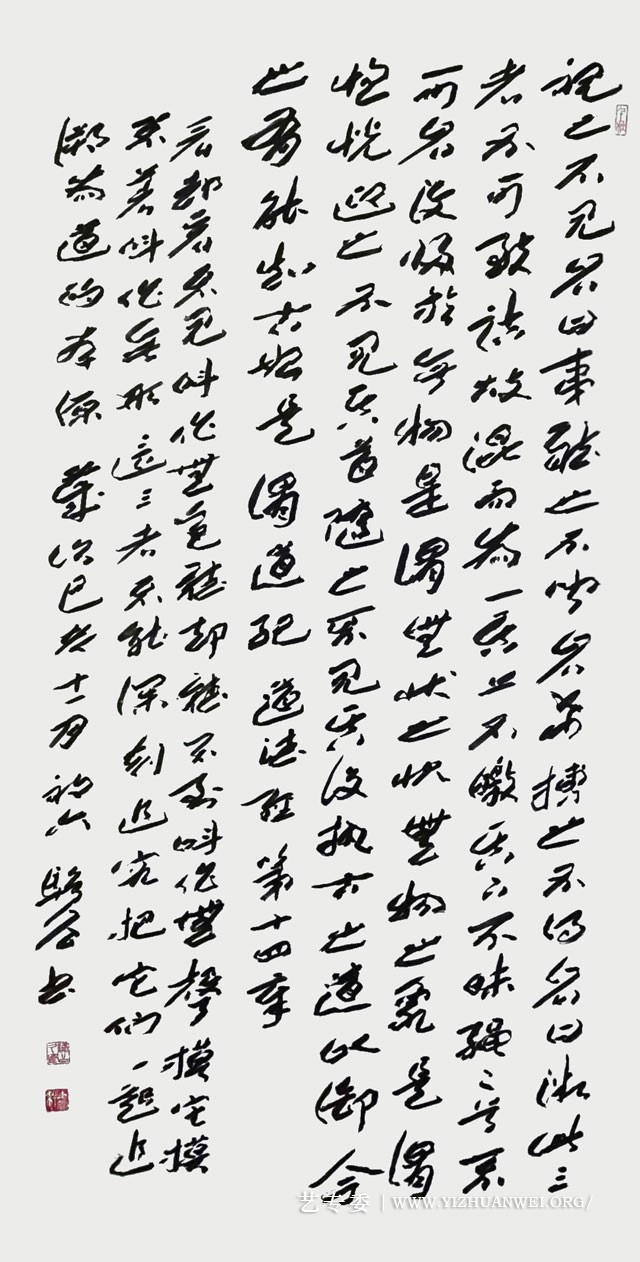 視之不見名曰夷聽之不聞名希搏之不得名曰微此三
者不可致詰故混而為一其上不皦其下不昧繩〻兮不
可名復歸於無物是謂無狀之狀無物之象是謂
惚恍迎之不見其首隨之不見其後執古之道以御今
之有能知古始是謂道紀 道德經第十四章
看都看不見叫作無色聽都聽不到叫作無聲摸它摸
不着叫作無形這三者不能深刻追究把它们一起追
溯為道的本源 歲次己亥十一月初六 書
艺专委 | WWW.YIZHUANWEI.ORG/